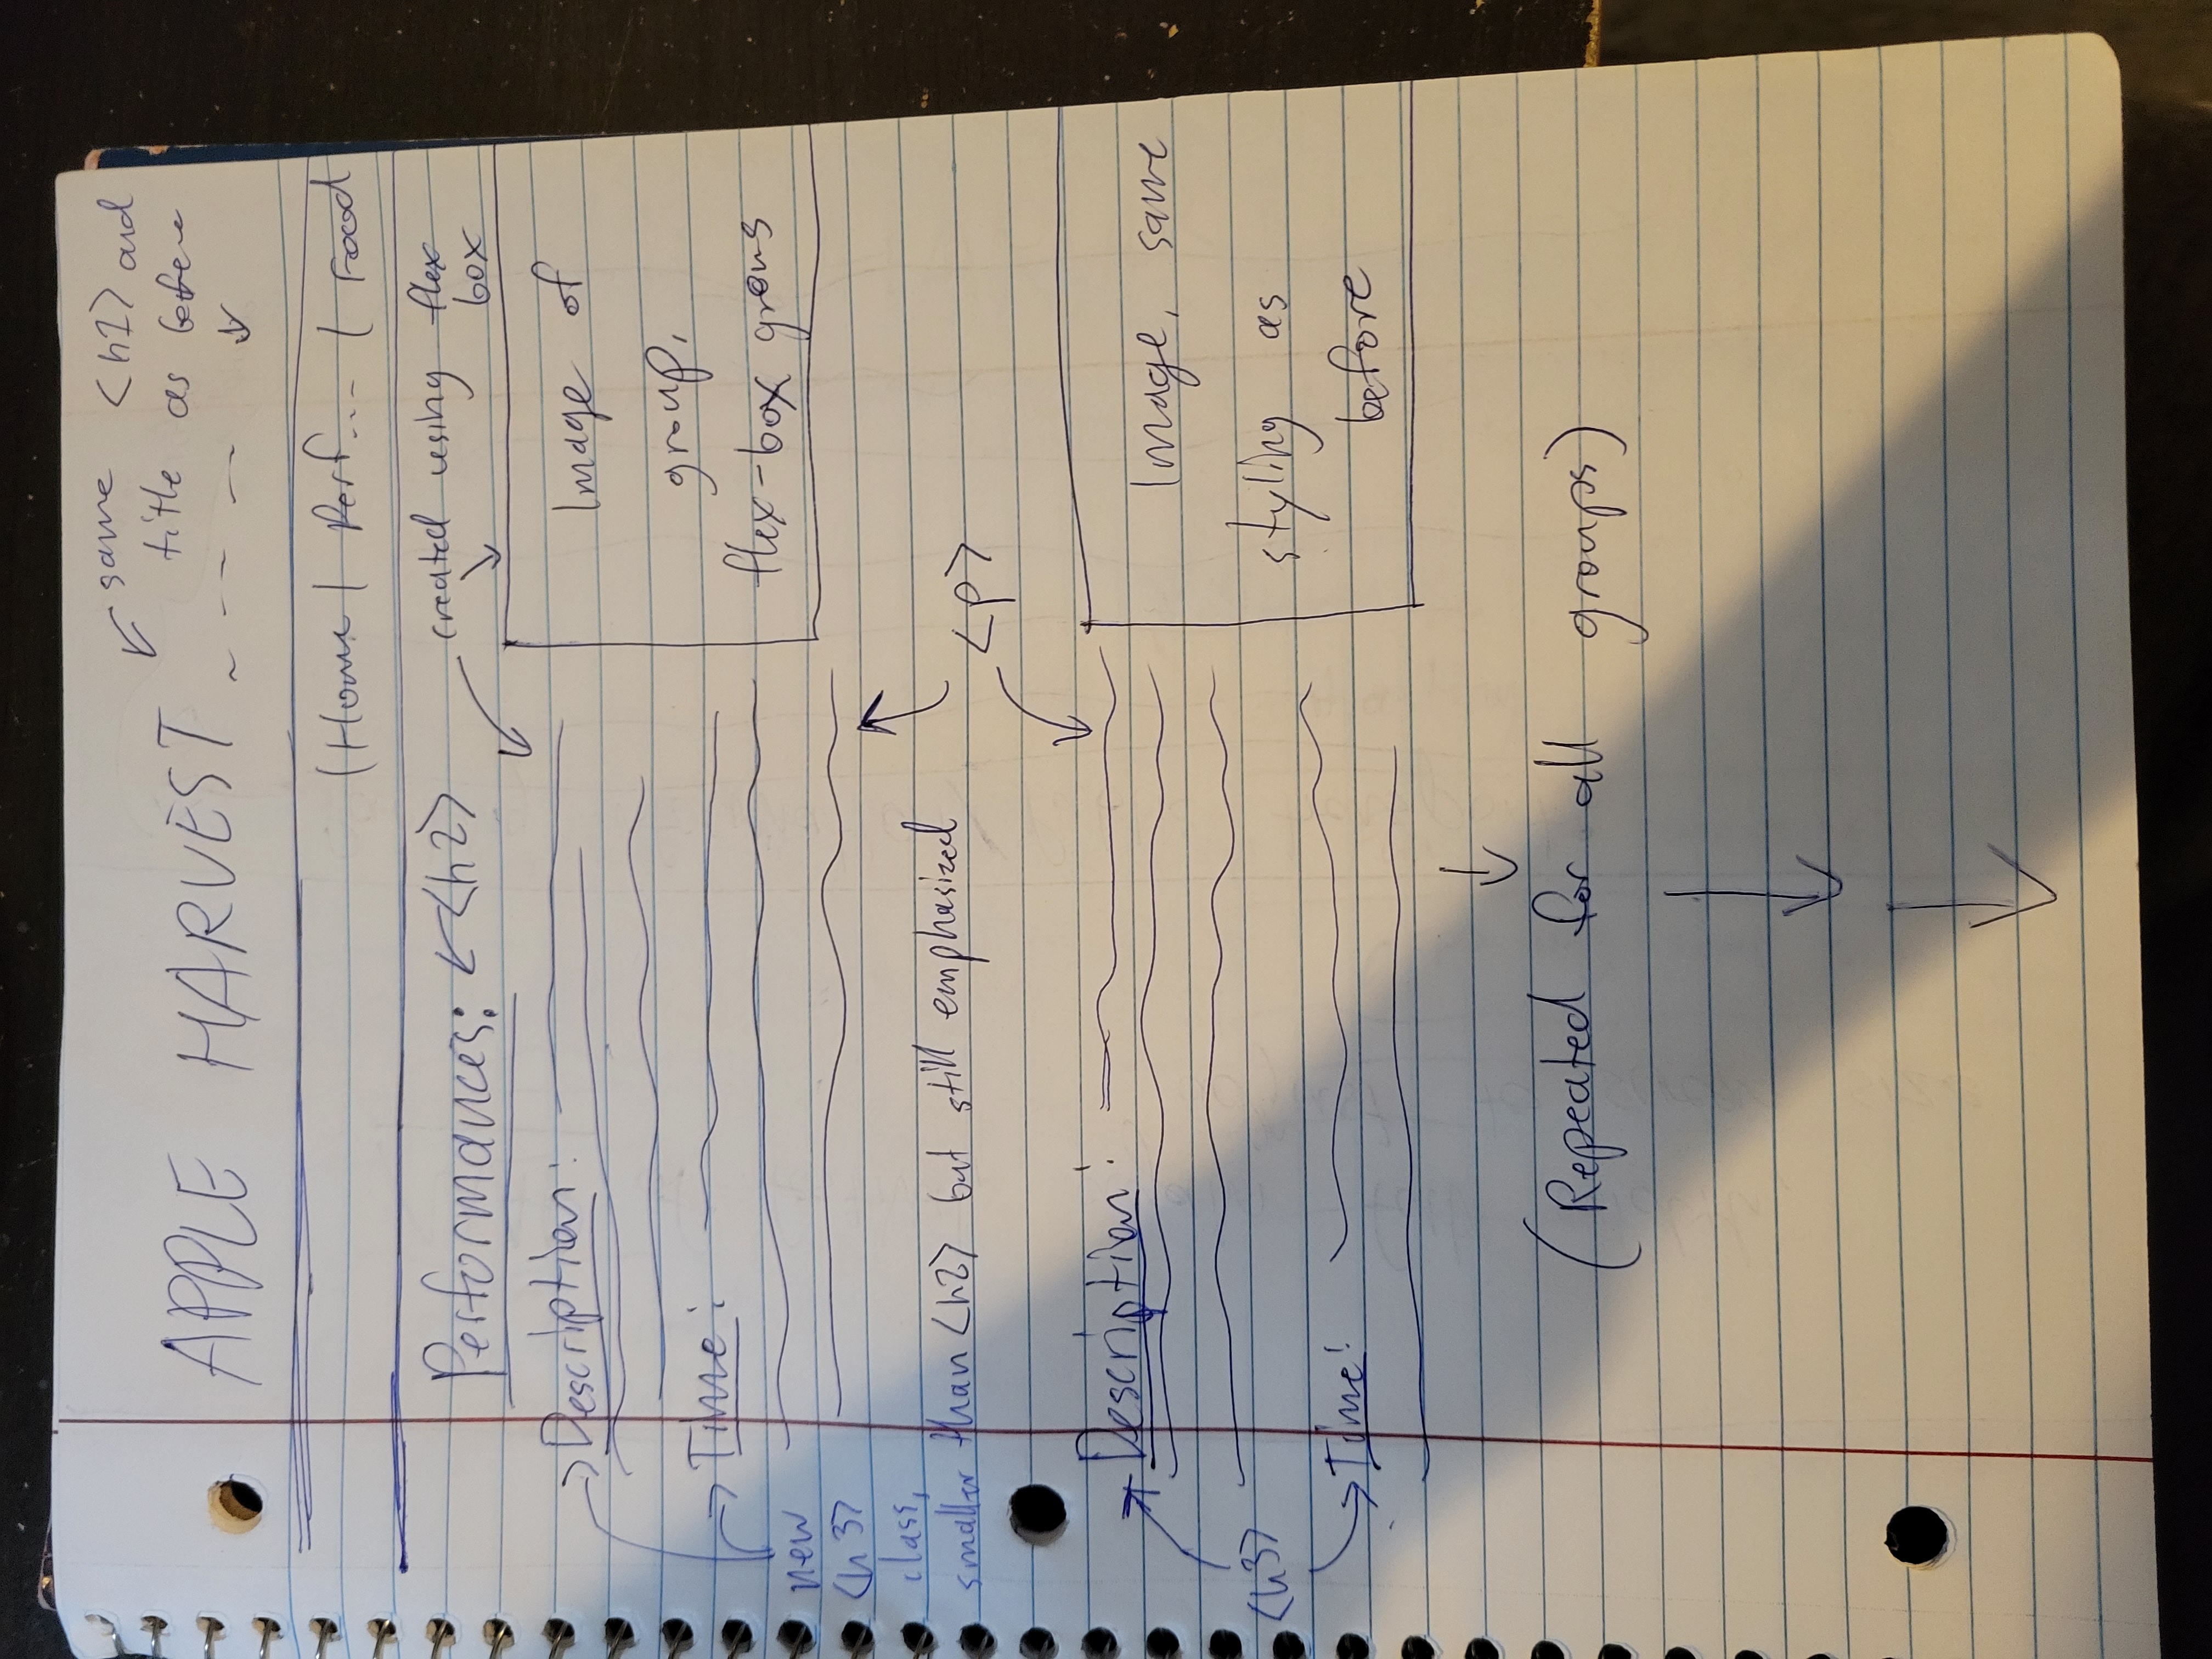 same <h1> and
title as before
APPLE HARVEST
|Home| Perf... | Food
Performances: <h2>
created using flex
box
Description:
Time:
Image of
group,
flex-box grows
new
<h3>
class,
smaller than <h2> but still emphasized
<p>
Description:
<h3>
Time:
Image, same
styling as
before
(Repeated for all groups)